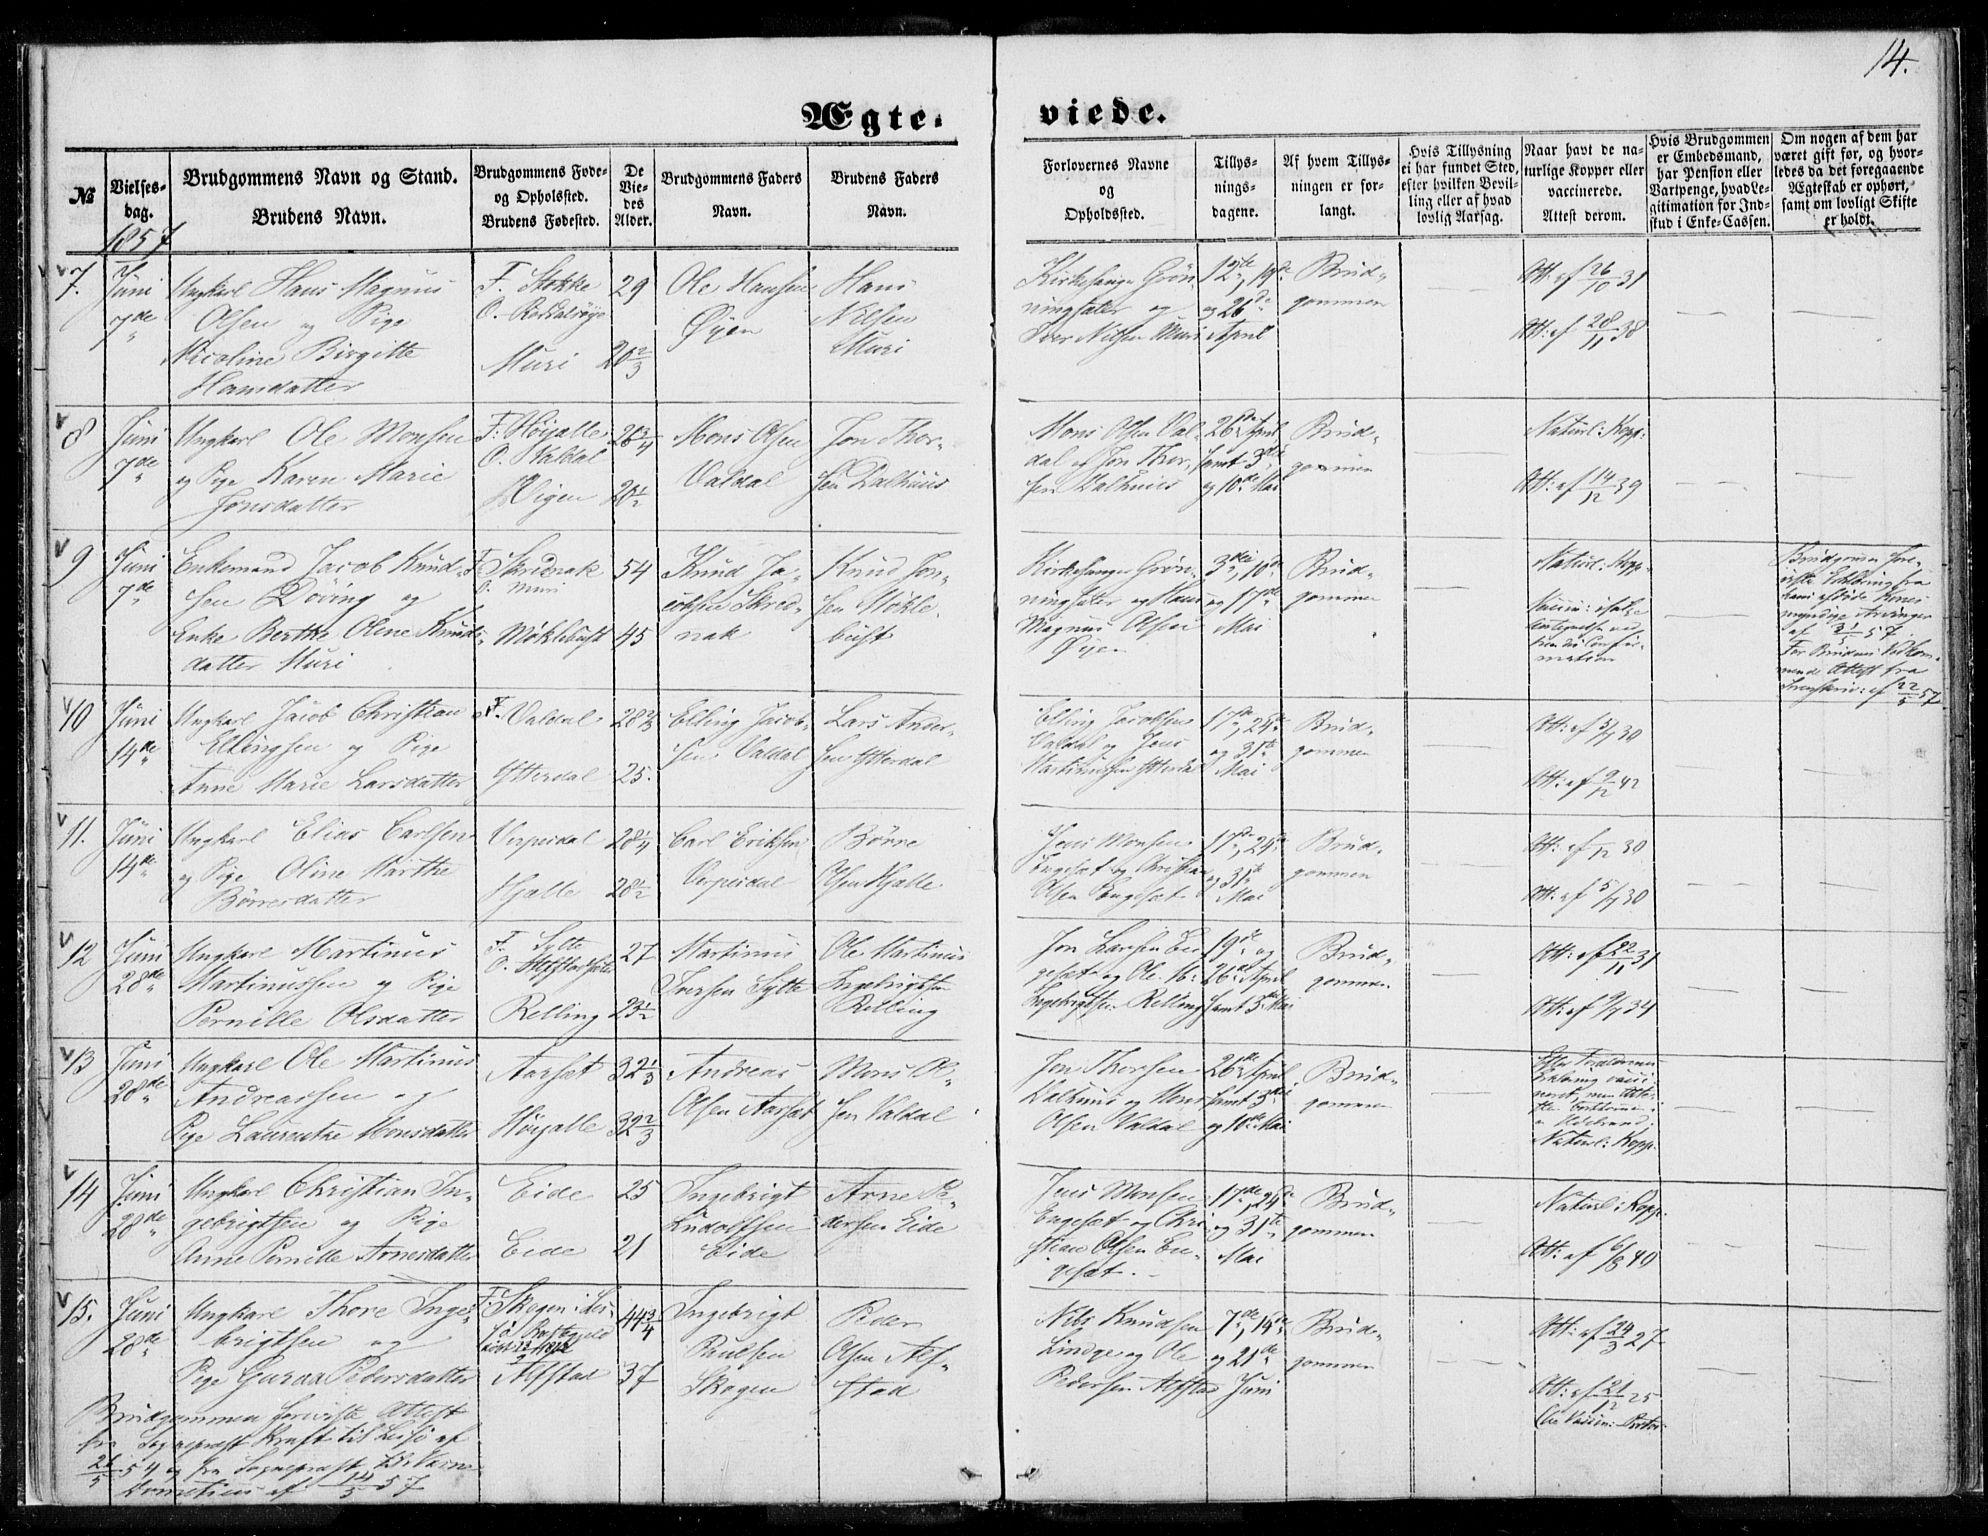 14.
Ægteviede.
№
Vielsesdag.
Brudgommens Navn og Stand.
Brudens Navn.
Brudgommens Føde- og Opholssted.
Brudens Fødested.
De Viedes Alder.
Brudgommens Faders Navn.
Brudens Faders Navn.
Forlovernes Navne og Opholdssted.
Tillysningsdagene.
Af hvem Tillysningen er forlangt.
Hvis Tillysning ei har fundet Sted, efter hvilken Bevilling eller af hvad lovlig Aarsag.
Naar havt de naturlige Kopper eller vaccinerede. Attest derom.
Hvis Brudgommen er Embedsmand, har Pension eller Vartpenge, hvad Legitimation for Indskud i Enke-Cassen.
Om nogen af dem har været gift før, og hvorledes da det foregaaende Ægteskab er ophørt, samt om lovligt Skifte er holdt.
1857
7. Juni 7de
Ungkarl Hans Magnus
Olsen og Pige
Nicoline Birgitte
Hansdatter
F. Stokke
Muri
29
20 2/3
Ole Hansen
Øyen
Hans
Nilsen
Muri
Kirkesanger Grön
ningsæter og
Iver Nilsen Muri
12te, 19de
og 26de
April
Brud-
gommen
Att: af 26/10 31
Att: af 28/11 38
8 Juni 7de
Ungkarl Ole Monsen
og Pige Karen Marie
Jonsdatter
F: Höijalle
O. Valdal
Vigen
26 3/4
20 1/2
Mons Olsen
Valdal
Jon Thor-
sen Dalhuus
Mons Olsen Val-
dal og Jon Thor-
sen Dalhuus
26de April
samt 3die
og 10de Mai
Brud-
gommen
Naturl: Kopp:
Att: af 14/12 39
9 Juni 7de
Enkemand Jacob Knud-
sen Döving og
Enke Berthe Oline Knuds-
datter Muri
F. Skrednak
O. Muri
Möklebust
54
45
Knud Ja-
cobsen Skred-
nak
Knud Jon-
sen Mökle-
bust
Kirkesanger Grön-
ningsæter og Hans
Magnus Olsen
Øyen
3die, 10de
og 17de
Mai
Brud-
gommen
Naturl: Kopp:
10 Juni 14de
Ungkarl Jacob Christian
Ellingsen og Pige
Anne Marie Larsdatter
F. Valdal
Ytterdal
28 2/3
25.
Elling Jacob-
sen Valdal
Lars Ander-
sen Ytterdal
Elling Jacobsen
Valdal og Jens
Martinussen Ytterdal
17de, 24de
og 31te
Mai
Brud-
gommen
Att: af 9/12 42
11. Juni 14de
Ungkarl Elias Carlsen
og Pige Oline Marthe
Börresdatter
Verpesdal
Hjelle
28 1/4
28 1/2
Carl Eriksen
Verpesdal
Börre
Olsen Hjelle
Jens Monsen
Engeset og Christian
Olsen Engeset
17de, 24de
og 31te
Mai
Brud-
gommen
Att: af 5/7 30
12 Juni 28de
Ungkarl Martinus
Martinussen og Pige
Pernille Olsdatter
F. Sylte
Relling
27
23 1/2
Martinus
Iversen Sylte
Ole Martinus
Ingebrigtsen
Relling
Jon Larsen En-
geset og Ole M:
Ingebrigtsen Relling
19de og
26de April
samt 3die Mai
Brud-
gommen
Att: af 22/11 31
Att: af 9/7 34
13 Juni 28de
Ungkarl Ole Martinus
Andreassen og
Pige Laurentze Monsdatter
Aarset
Höijalle
32 1/3
32 2/3
Andreas
Olsen Aarset
Mons Ol-
sen Valdal
Jon Thorsen
Dalhuus og Mons
Olsen Valdal
26de April
samt 3die
og 10de Mai
Brud-
gommen
Naturl: Kopp:
14 Juni 28de
Ungkarl Christian In-
gebrigtsen og Pige
Anne Pernille Arnesdatter
Eide
Eide
25
21
Ingebrigt
Ludolfsen
Eide
Arne Pe-
dersen Eide
Jens Monsen
Engeset og Chri-
stian Olsen En-
geset.
17de, 24de
og 31te
Mai
Brud-
gommen
Naturl: Kopp:
Att: af 6/8 40
15. Juni 28de
Ungkarl Thore Inge-
brigtsen og
Pige Guroa Pedersdatter
F. Skogen i Les-
Alfstad
44 3/4
37
Ingebrigt
Paulsen
Skogen
Peder
Olsen Alf-
stad
Nils Knudsen
Linge og Ole
Pedersen Alfstad
7de, 14de
og 21de
Juni
Brud-
gommen
Att: af 24/3 27
Att: af 21/12 25
Brudgommen foreviste Attest
fra Sognepræst Kraft til Lesjö af
24/5 54 og fra Sognepræst
af 14/5 57